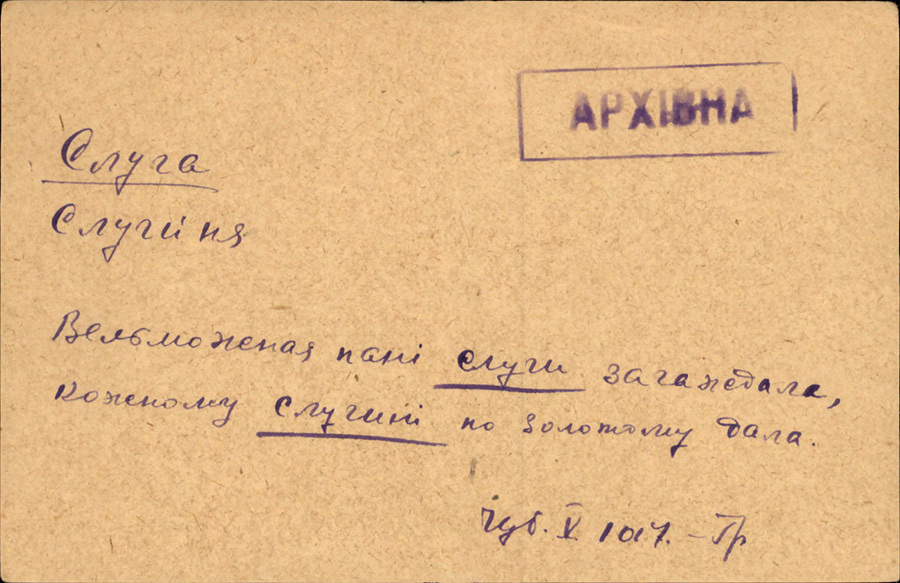 АРХІВНА
Слуга
Слугиня
Вельможная пані слуги загаждала,
кожному слугині по золотому дала.
Чуб. V 1017. – Гр